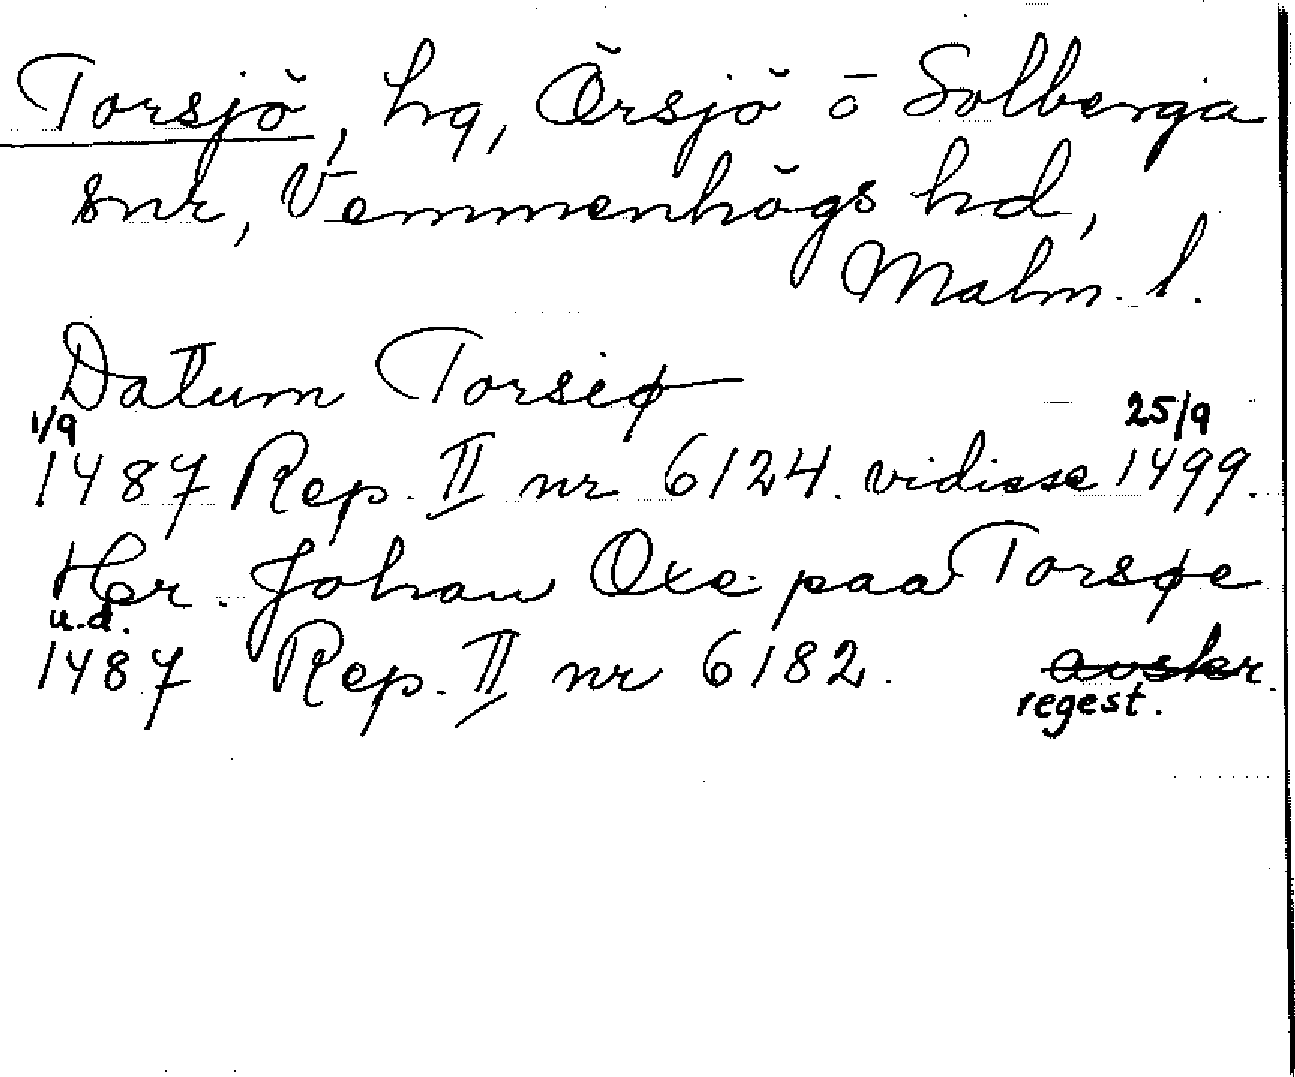 Torsjö, hg, Örsjö o Solberga
snr, Vemmenhögs hd,
Malm. l.
Datum Torsiø
1/9 25/9
1487 Rep. II nr 6124. vidisse 1499.
Her. Johan Oxe paa Torsøe
u.d.
1487 Rep. II nr 6182. avskr.
regest.